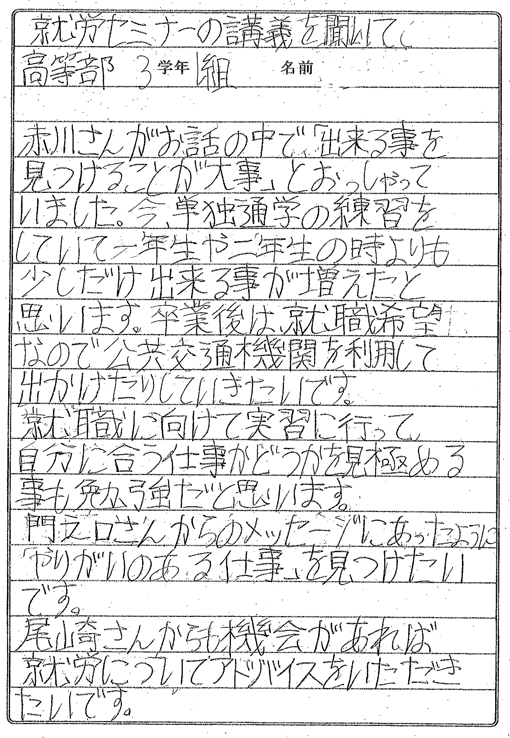 就労セミナーの講義を聞いて、
高等部 3 学年 1組 名前
赤川さんがお話の中で「出来る事を
見つけることが大事」とおっしゃって
いました。今、単独通学の練習を
していて一年生や二年生の時よりも
少しだけ出来る事が増えたと
思います。卒業後は、就職希望
なので公共交通機関を利用して
出かけたりしていきたいです。
就職に向けて実習に行って、
自分に合う仕事かどうかを見極める
事も勉強だと思います。
門之口さんからのメッセージにあったように
「やりがいのある仕事」を見つけたい
です。
尾崎さんからも機会があれば
就労についてアドバイスをいただき
たいです。